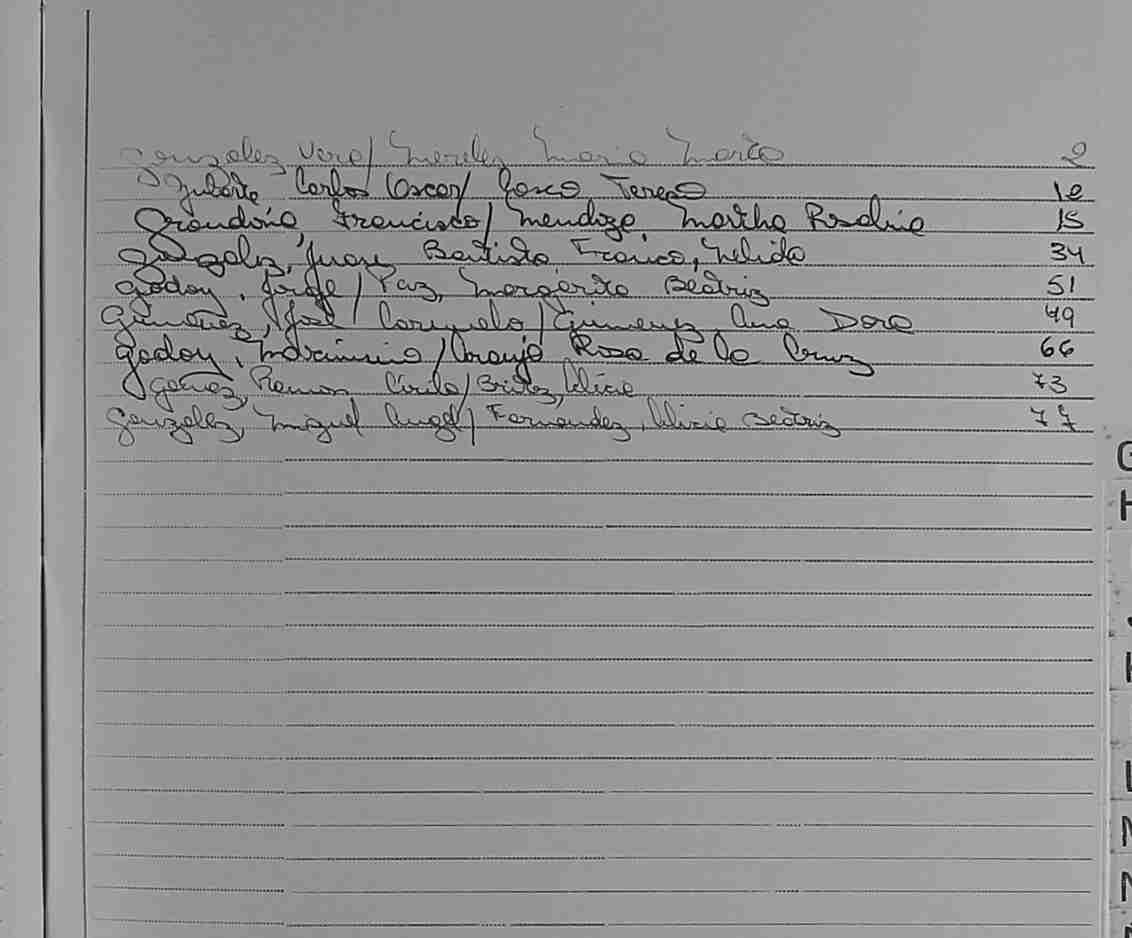 Gonzalez Vera/ Merelez Maria Marta 2
Carlos Oscar/ Gasco Teresa 10
Grandoria, Francisco/ Mendoza Martha Rosalina 15
Gonzalez, Juan Bautista, Franco, Nelida 34
Godoy, Jorge/ Paz, Margarita Beatriz 51
Gimenez, José Carmelo/ Gimenez Ana Dora 49
Godoy, Maximinio/ Araujo Rosa de la Cruz 66
Gomez, Ramon Cirilo/ Britez, Alicia 73
Gonzalez, Miguel Angel/ Fernandez, Alicia Beatriz 77
G
H
J
K
L
M
N